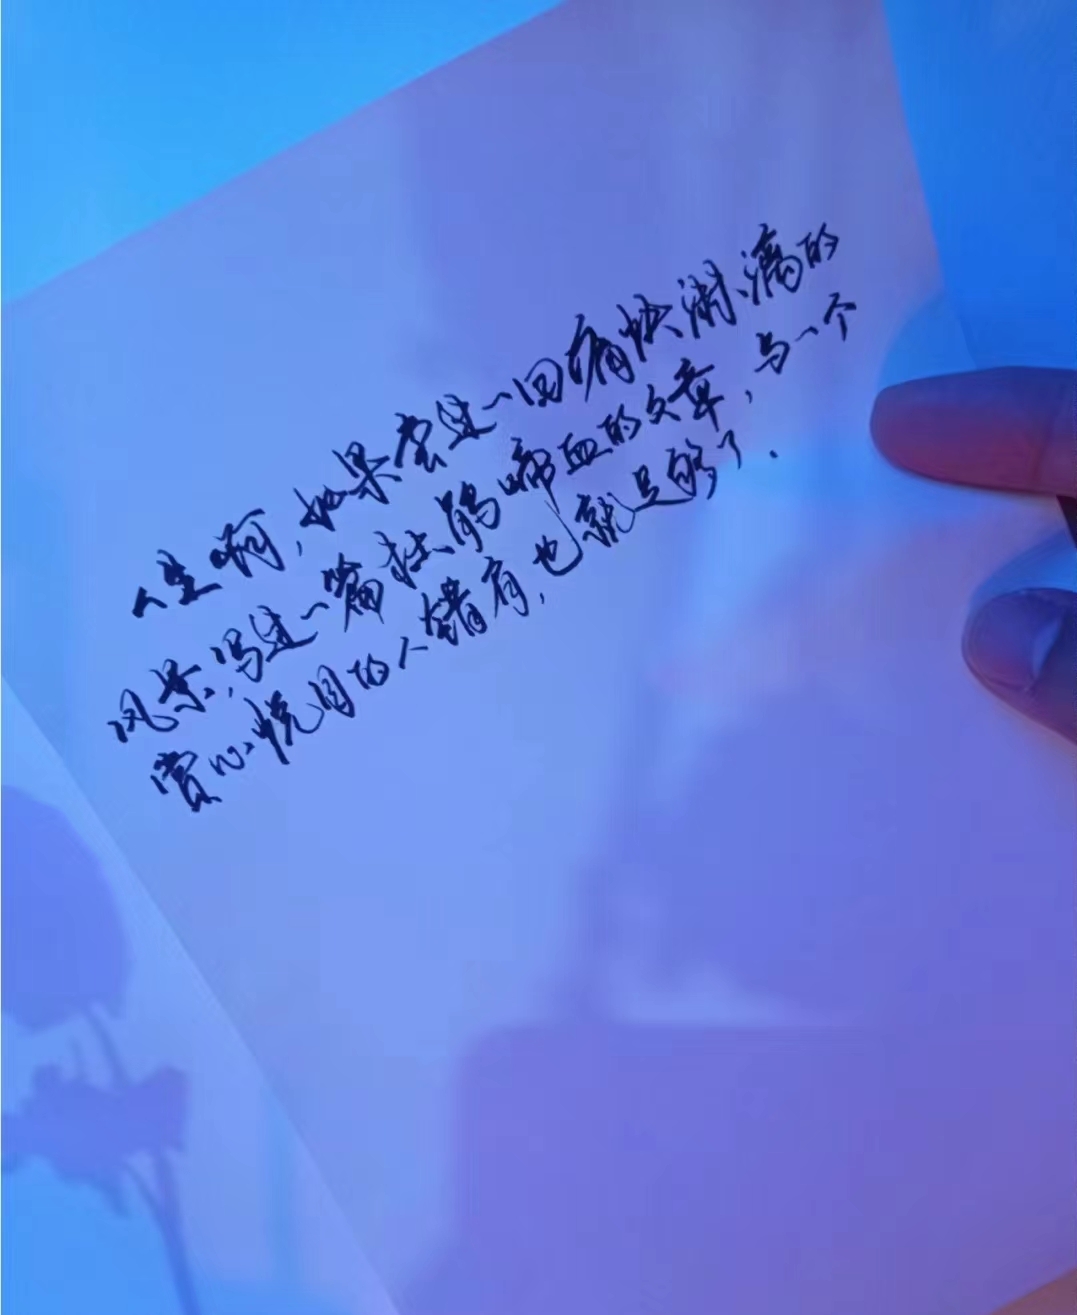 人生啊，如果尝过一回痛快淋漓的
风景，写过一篇杜鹃啼血的文章，与一个
赏心悦目的人错肩，也就足够了．